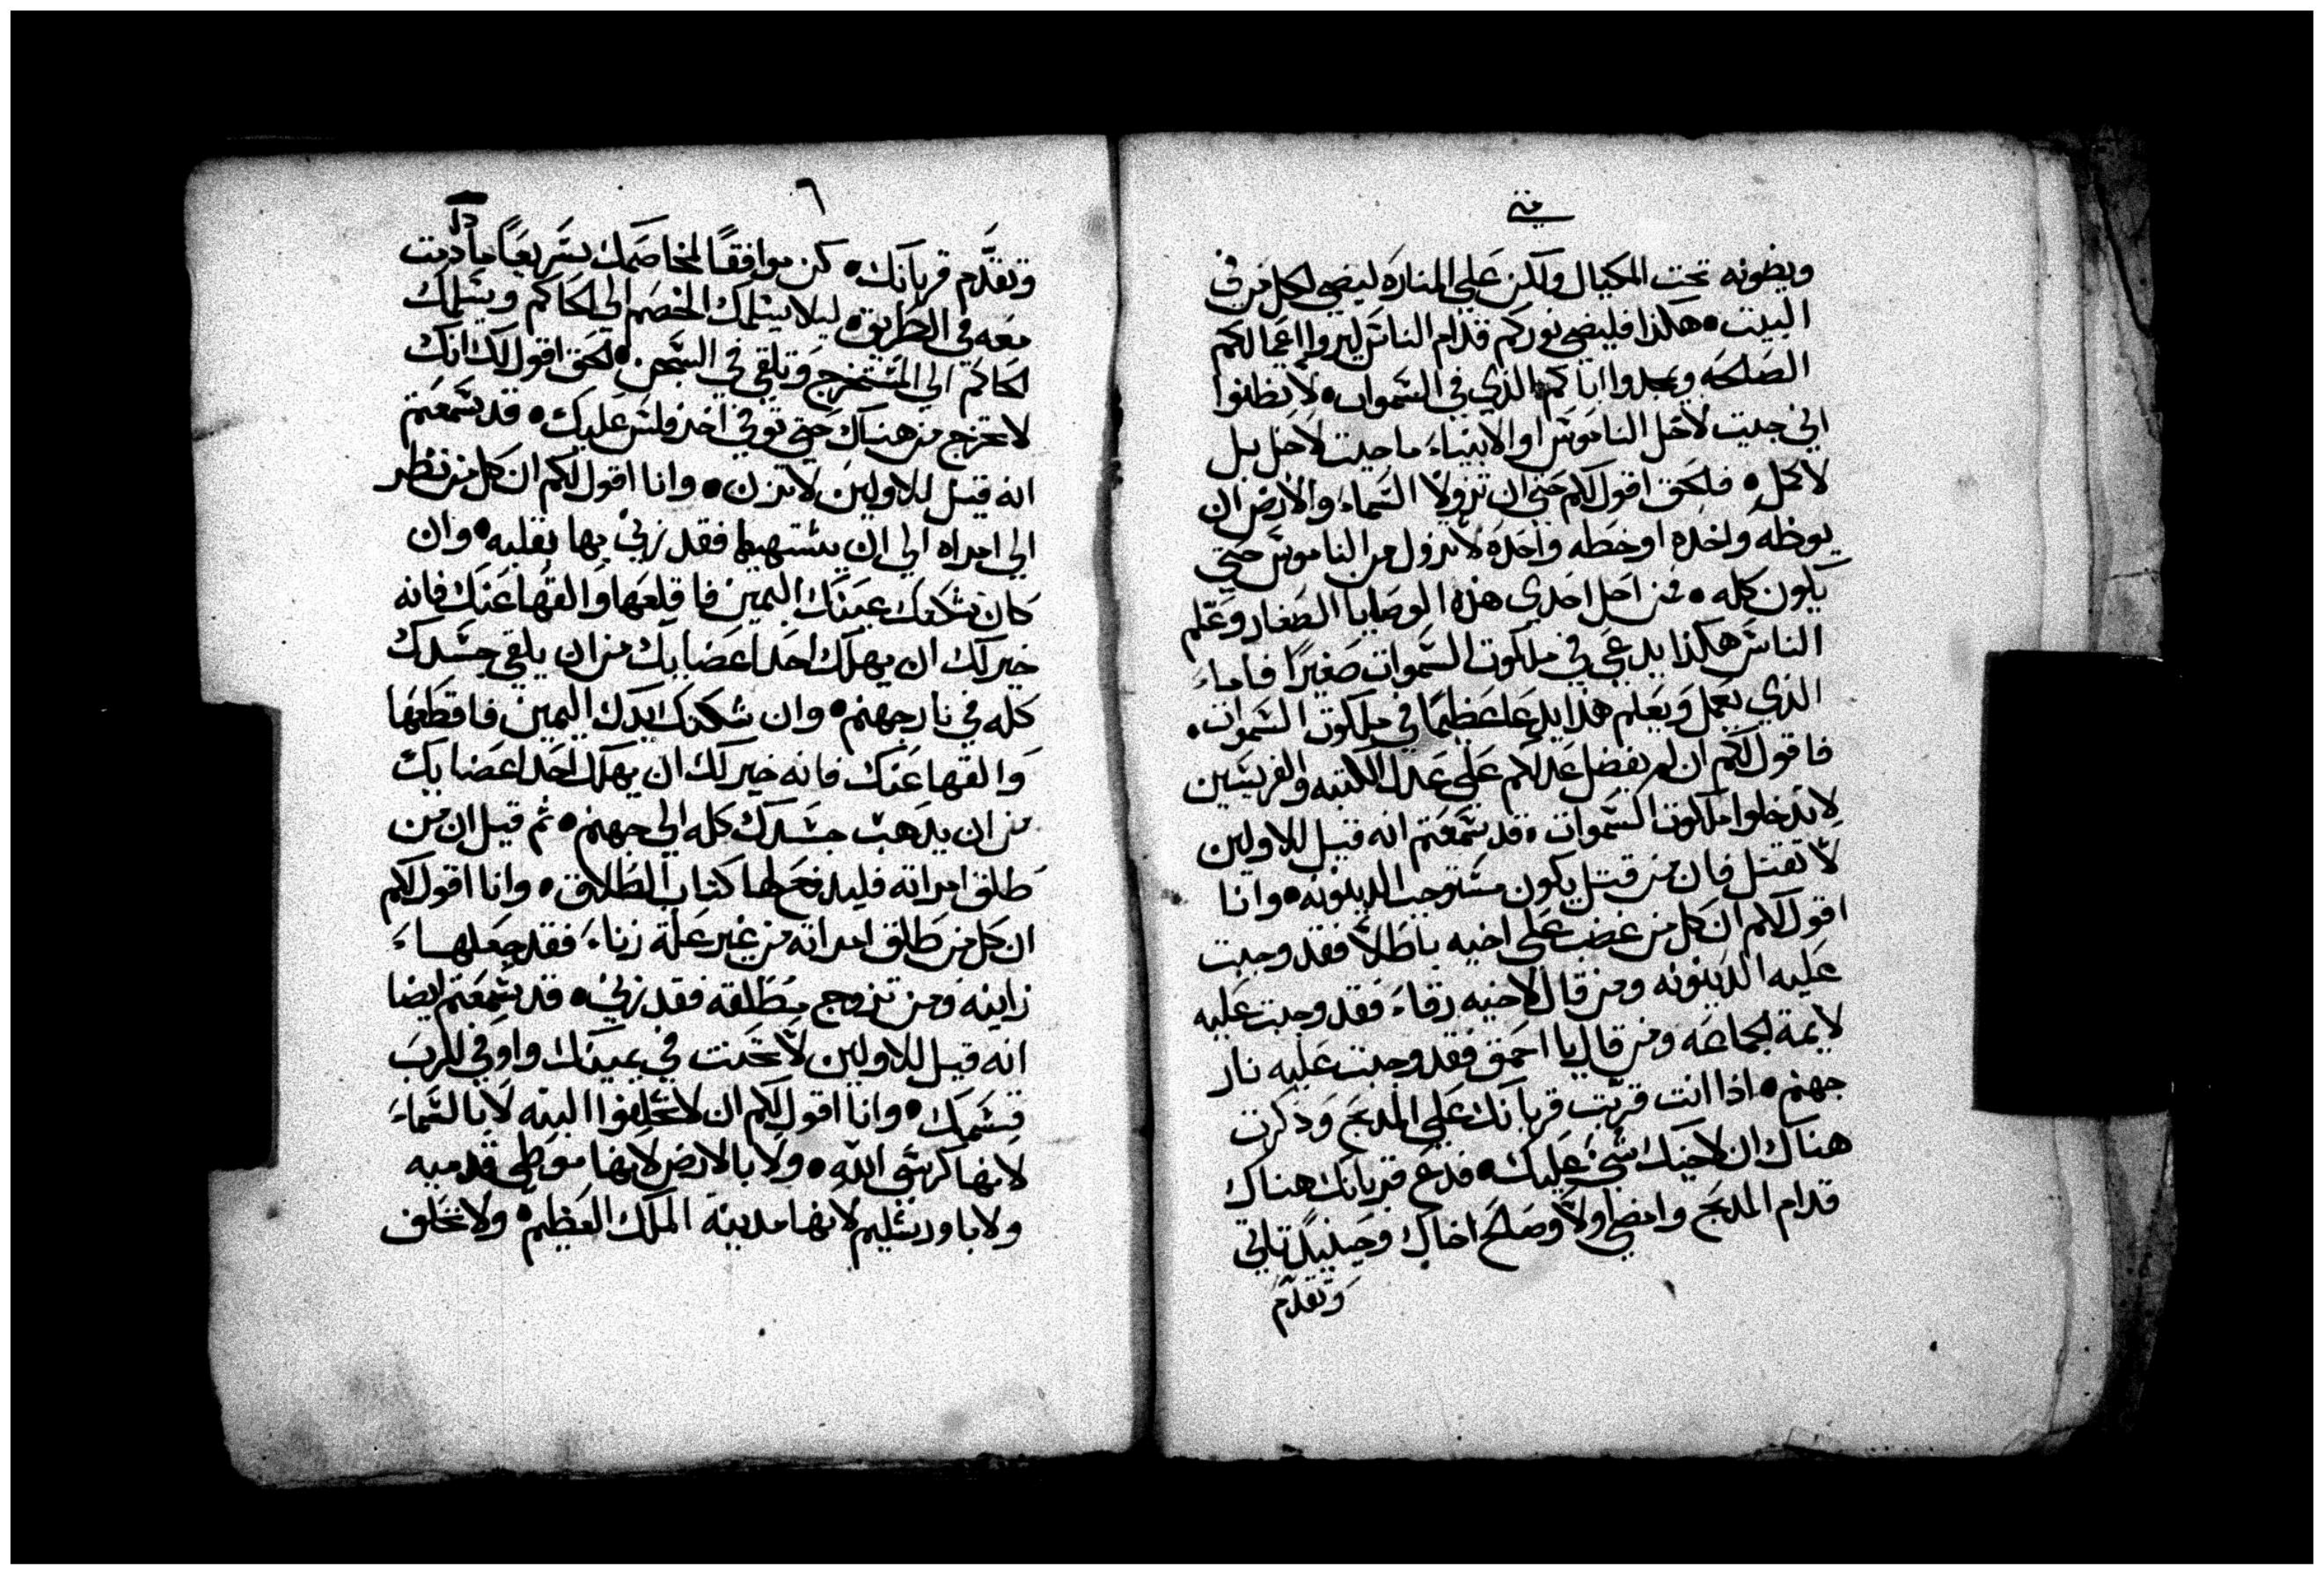 متى
ويضونه تحت المكيال ولكن علي المناره ليضي لكل من في
البيت • هكذا فليضي نوركم قدام الناس ليروا اعمالكم
الصالحه ويمجدوا اباكم الذي في السموات • لا تظنوا
اني جيت لاحل الناموس او الانبياء ما جيت لاحل بل
لاكمل • فالحق اقول لكم حتي ان تزولا السماء والارض ان
يوطه واحده او خطه واحده لا تزول من الناموس حتي
يكون كله • فمن احل احدي هذه الوصايا الصغار وعلم
الناس هكذا يدعي في ملكوت السموات صغيرًا فاماء
الذي يعمل ويعلم هذا يدعا عظيمًا في ملكوت السموات •
فاقول لكم ان لم يفضل عدلكم علي عدل الكتبه والفريسين
لا تدخلوا ملكوت السموات • قد سمعتم انه قيل للاولين
لا تقتل فان من قتل يكون مستوجب الدينونه • وانا
اقول لكم ان كل من غضب علي اخيه باطلاً فقد وجبت
عليه الدينونه ومن قال لاخيه رقاء فقد وجبت عليه
لايمة الجماعه ومن قال يا احمق فقد وجبت عليه نار
جهنم • اذا انت قربت قربانك علي المدبح وذكرت
هناك ان لاخيك شيء عليك • فدع قربانك هناك
قدام المدبح وامضي اولاً وصالح اخاك وحينيدٍ تاتي
وتقدم
٦
وتقدَّم قربانك • كن موافقًا لمخاصمك سريعًا ما دمت
معه في الطريق • ليلا يسلمك الخصم الي الحاكم ويسلمك
الحاكم الي المستخرج وتلقي في السجن • الحق اقول لك انك
لا تخرج من هناك حتي توفي اخر فلس عليك • قد سمعتم
انه قيل للاولين لا تزن • وانا اقول لكم ان كل من نظر
الي امراه الي ان يشتهيها فقد زني بها بقلبه • وان
كان شككك عينك اليمين فاقلعها والقها عنك فانه
خير لك ان يهلك احد اعضايك من ان يلقي جسدك
كله في نار جهنم • وان شككتك ايدك اليمين فاقطعها
والقها عنك فانه خير لك ان يهلك احد اعضايك
من ان يدهب جسدك كله الي جهنم • ثم قيل ان من
طلق امراته فليدفع لها كتاب الطلاق • وانا اقول لكم
ان كل من طلق امراته من غير علة زناء فقد جعلهاء
زاينه ومن تزوج مطلقه فقد زني • قد سمعتم ايضا
انه قيل للاولين لا تحنت في يمينك واوفي للرب
قسمك • وانا اقول لكم ان لا تحلفوا البته لا بالسماء
لانها كرسي الله • ولا بالارض لانها موطي قدميه
ولا باورشليم لانها مدينة الملك العظيم • ولا تحلف